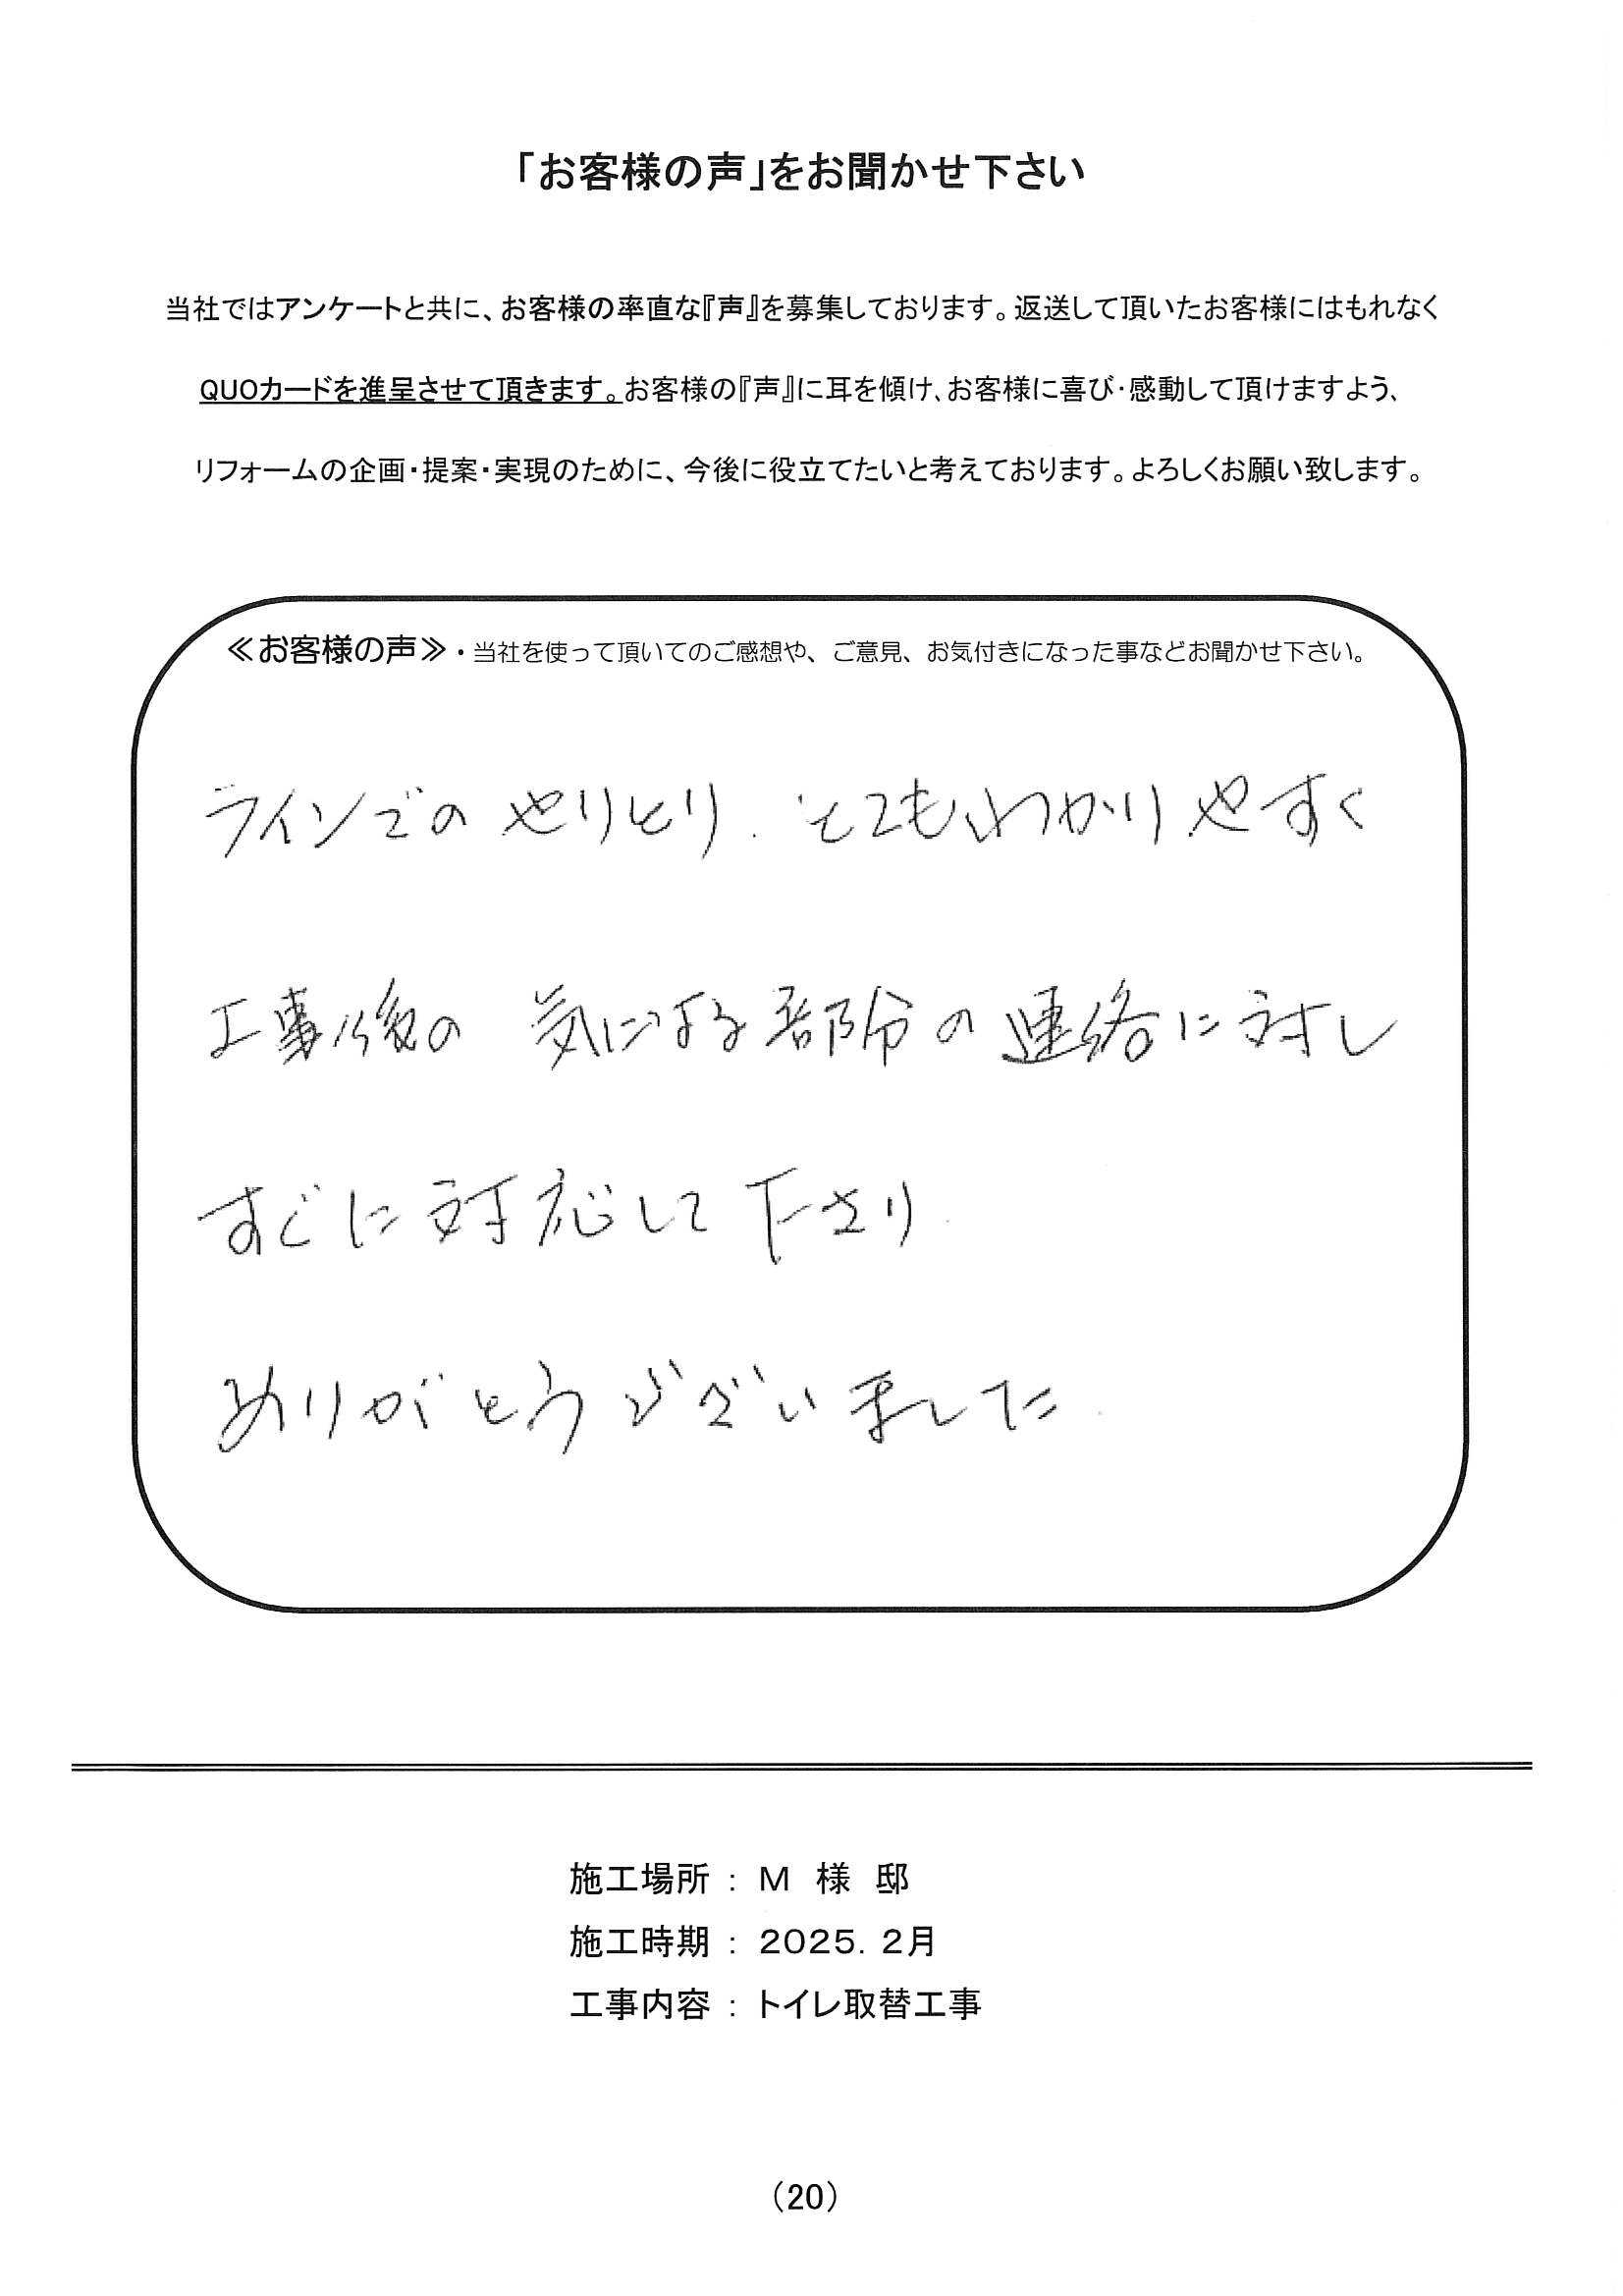 「お客様の声」をお聞かせ下さい
当社ではアンケートと共に、お客様の率直な『声』を募集しております。返送して頂いたお客様にはもれなく
QUOカードを進呈させて頂きます。お客様の『声』に耳を傾け、お客様に喜び・感動して頂けますよう、
リフォームの企画・提案・実現のために、今後に役立てたいと考えております。よろしくお願い致します。
≪お客様の声≫・当社を使って頂いてのご感想や、ご意見、お気付きになった事などお聞かせ下さい。
ラインでのやりとり、とてもわかりやすく
工事後の 気になる部分の連絡に対し
すぐに対応して下さり
ありがとうございました
施工場所 : M 様 邸
施工時期 : 2025. 2月
工事内容 : トイレ取替工事
(20)